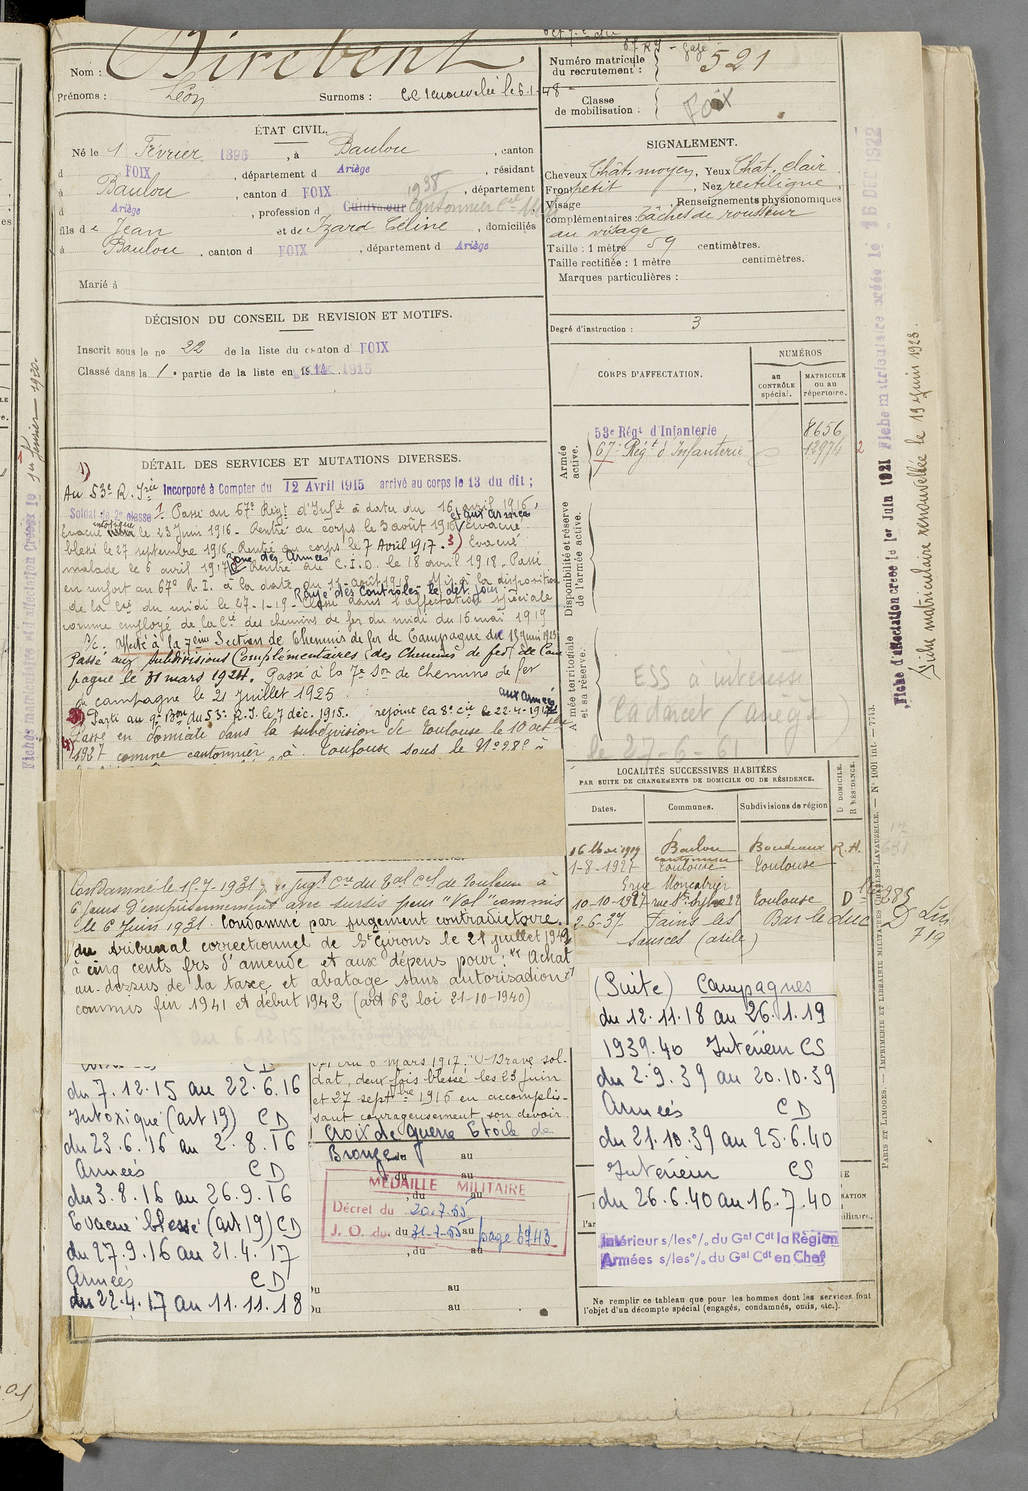 Nom : Birebent
Prénoms : Léon Surnoms : CC renouvelée le 6.1.48
ÉTAT CIVIL.
Né le 1 Février 1896, à Baulou, canton
d FOIX, département d Ariège, résidant
à Baulou, canton d FOIX, département
d Ariège, profession d Cultivateur 1938 Cantonnier
fils de Jean et de Izard Céline, domiciliés
à Baulou, canton d FOIX, département d Ariège
Marié à
DÉCISION DU CONSEIL DE REVISION ET MOTIFS.
Inscrit sous le no 22 de la liste du canton d FOIX
Classé dans la 1e partie de la liste en 1915
DÉTAIL DES SERVICES ET MUTATIONS DIVERSES.
1)
Au 53e R. Irie Incorporé à Compter du 12 Avril 1915 arrivé au corps le 13 du dit ;
Soldat de 2e classe 1. Passé au 67e Régt d'Infie à datu du 16 avril 1916,
et aux armées
Evacué intoxiqué le 23 Juin 1916 - Rentré au corps le 3 août 1916 Evacué
blessé le 27 septembre 1916 Rentré au corps le 7 Avril 1917. 3) Evacué
Zone des Armées
malade le 6 avril 1917 Rentré au C.I.D. le 18 avril 1918. Passé
en renfort au 67e R. I. à la date du 11 août 1918. Mis à la disposition
Rayé des Contrôles le dit jour
de la Cie du midi le 27-1-19 - Classé dans l'affectation spéciale
comme employé de la Cie des chemins de fer du midi du 16 mai 1919
Affecté à la 7ème Section de Chemins de fer de Campagne du 15 Juin 1923
Passé aux Subdivisions Complémentaires des Chemins de fer de Cam
pagne le 31 mars 1924. Passé à la 7e Son de Chemins de fer
de campagne le 21 Juillet 1925
aux armées
Parti au 9e Bon du 53e R.I. le 7 déc. 1915. rejoint la 8e Cie le 22-4-1917
Passé en domicile dans la subdivision de Toulouse le 10 octbre
1927 comme cantonnier à Toulouse sous le No 985 à
Condamné le 15-7-1931 par jugt Cre du Tal Cel de Toulouse à
6 jours d'emprisonnement avec sursis pour "Vol" commis
le 6 Juin 1931. Condamné par jugement contradictoire
du tribunal correctionnel de St Girons le 21 juillet 1942
à cinq cents frs d'amende et aux dépens pour : "Achat
au-dessus de la taxe et abatage sans autorisation"
commis fin 1941 et début 1942 (art 62 loi 21-10-1940)
C D
du 7.12.15 au 22.6.16
Intoxiqué (art 19) C D
du 23.6.16 au 2.8.16
Armées C D
du 3.8.16 au 26.9.16
Evacué blessé (art 19) C D
du 27.9.16 au 21.4.17
Armées C D
du 22.4.17 au 11.11.18
6 mars 1917, "Brave sol-
dat, deux fois blessé les 23 juin
et 27 septbre 1916 en accomplis-
sant courageusement son devoir
Croix de guerre Etoile de
Bronze
, du au
MÉDAILLE MILITAIRE
Décret du 20.7.55
J. O. du 31-7-55 page 6743
, du au
Du au
Du au
Numéro matricule du recrutement : 521
Classe de mobilisation : Foix
SIGNALEMENT.
Cheveux Chât. moyen, Yeux Chât. clair
Front petit, Nez rectiligne
Visage ; Renseignements physionomiques
complémentaires tâches de rousseur
au visage
Taille : 1 mètre 59 centimètres.
Taille rectifiée : 1 mètre centimètres.
Marques particulières :
Degré d'instruction : 3
CORPS D'AFFECTATION.
NUMÉROS
au CONTRÔLE spécial.
MATRICULE ou au répertoire.
Armée active.
53e Régt d'Infanterie 8656
67e Régt d'Infanterie 12974 2
Disponibilité et réserve de l'armée active.
Armée territoriale et sa réserve.
ESS à intéressé
Cadarcet (ariège)
le 27-6-6
LOCALITÉS SUCCESSIVES HABITÉES
PAR SUITE DE CHANGEMENTS DE DOMICILE OU DE RÉSIDENCE.
Dates. Communes. Subdivisions de région D DOMICILE. R RÉSIDENCE.
16 Mai 1919 Baulou Bordeaux R.
1-8-1927 Toulouse Toulouse
10-10-1927 rue St Sylve 22 Toulouse D 985
2-6-37 Fains les Sources (asile) Bar le Duc D
719
(Suite) Campagnes
du 12.11.18 au 26.1.19
1939.40 Intérieur CS
du 2.9.39 au 20.10.39
Armées C D
du 21.10.39 au 25.6.40
Intérieur CS
du 26.6.40 au 16.7.40
Intérieur s/les o/. du Gal Cdt la Région
Armées s/les o/. du Gal Cdt en Chef
Ne remplir ce tableau que pour les hommes dont les services font
l'objet d'un décompte spécial (engagés, condamnés, omis, etc.).
PARIS ET LIMOGES. — IMPRIMERIE ET LIBRAIRIE MILITAIRES CHARLES-LAVAUZELLE. — No 1601 int. — 7743.
Fiche d'affectation créée le 1er Juin 1921
Fiche matriculaire créée le 16 DEC 1922
Fiche matriculaire renouvellée le 19 juin 1923.
Fiches matriculaire et d'affectation Créées le 1er Janvier 1920